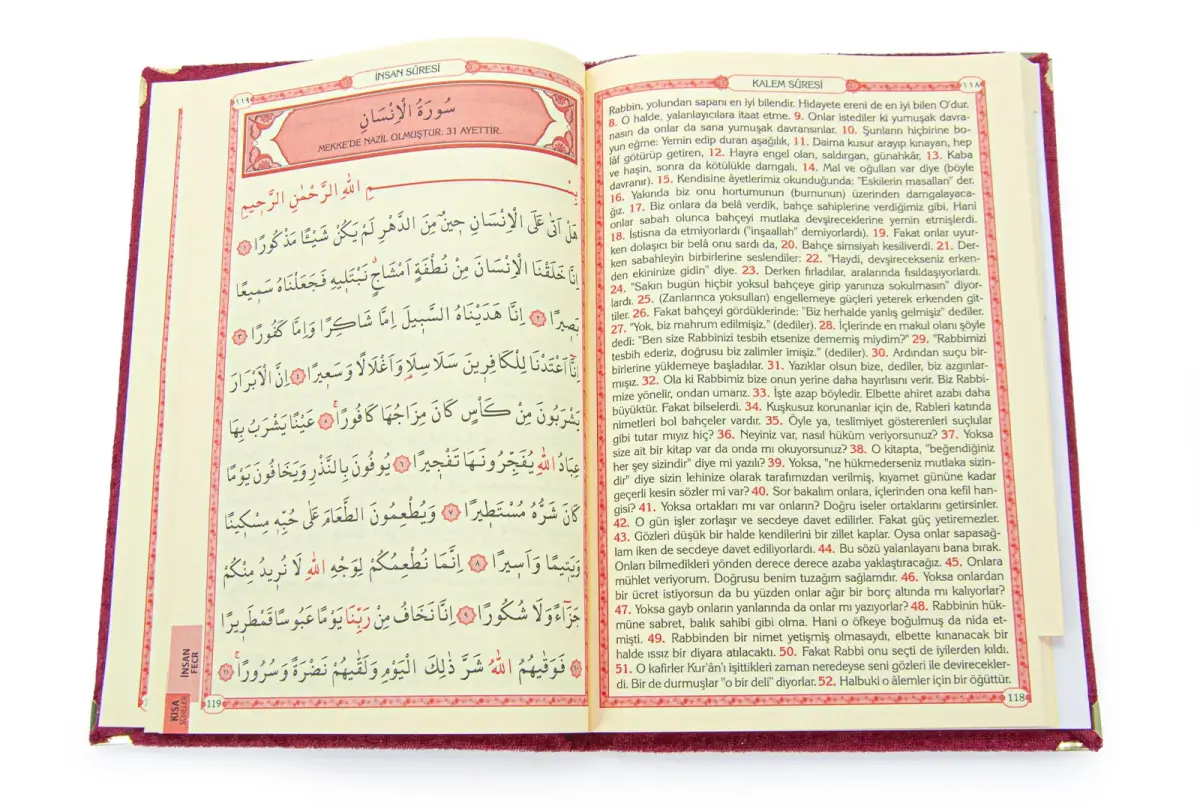 KALEM SÛRESİ
١١٨
Rabbin, yolundan sapanı en iyi bilendir. Hidayete ereni de en iyi bilen O'dur.
8. O halde, yalanlayıcılara itaat etme. 9. Onlar istediler ki yumuşak davra-
nasın da onlar da sana yumuşak davransınlar. 10. Şunların hiçbirine bo-
yun eğme: Yemin edip duran aşağılık, 11. Daima kusur arayıp kınayan, hep
lâf götürüp getiren, 12. Hayra engel olan, saldırgan, günahkâr, 13. Kaba
ve haşin, sonra da kötülükle damgalı, 14. Mal ve oğulları var diye (böyle
davranır). 15. Kendisine âyetlerimiz okunduğunda: "Eskilerin masalları" der.
16. Yakında biz onu hortumunun (burnunun) üzerinden damgalayaca-
ğız. 17. Biz onlara da belâ verdik, bahçe sahiplerine verdiğimiz gibi. Hani
onlar sabah olunca bahçeyi mutlaka devşireceklerine yemin etmişlerdi.
18. İstisna da etmiyorlardı ("inşaallah" demiyorlardı). 19. Fakat onlar uyur-
ken dolaşıcı bir belâ onu sardı da, 20. Bahçe simsiyah kesiliverdi. 21. Der-
ken sabahleyin birbirlerine seslendiler: 22. "Haydi, devşirecekseniz erken-
den ekininize gidin" diye. 23. Derken fırladılar, aralarında fısıldaşıyorlardı.
24. "Sakın bugün hiçbir yoksul bahçeye girip yanınıza sokulmasın" diyor-
lardı. 25. (Zanlarınca yoksulları) engellemeye güçleri yeterek erkenden git-
tiler. 26. Fakat bahçeyi gördüklerinde: "Biz herhalde yanlış gelmişiz" dediler.
27. "Yok, biz mahrum edilmişiz." (dediler). 28. İçlerinde en makul olanı şöyle
dedi: "Ben size Rabbinizi tesbih etsenize dememiş miydim?" 29. "Rabbimizi
tesbih ederiz, doğrusu biz zalimler imişiz." (dediler). 30. Ardından suçu bir-
birlerine yüklemeye başladılar. 31. Yazıklar olsun bize, dediler, biz azgınlar-
mışız. 32. Ola ki Rabbimiz bize onun yerine daha hayırlısını verir. Biz Rabbi-
mize yönelir, ondan umarız. 33. İşte azap böyledir. Elbette ahiret azabı daha
büyüktür. Fakat bilselerdi. 34. Kuşkusuz korunanlar için de, Rableri katında
nimetleri bol bahçeler vardır. 35. Öyle ya, teslimiyet gösterenleri suçlular
gibi tutar mıyız hiç? 36. Neyiniz var, nasıl hüküm veriyorsunuz? 37. Yoksa
size ait bir kitap var da onda mı okuyorsunuz? 38. O kitapta, "beğendiğiniz
her şey sizindir" diye mi yazılı? 39. Yoksa, "ne hükmederseniz mutlaka sizin-
dir" diye sizin lehinize olarak tarafımızdan verilmiş, kıyamet gününe kadar
geçerli kesin sözler mi var? 40. Sor bakalım onlara, içlerinden ona kefil han-
gisi? 41. Yoksa ortakları mı var onların? Doğru iseler ortaklarını getirsinler.
42. O gün işler zorlaşır ve secdeye davet edilirler. Fakat güç yetiremezler.
43. Gözleri düşük bir halde kendilerini bir zillet kaplar. Oysa onlar sapasağ-
lam iken de secdeye davet ediliyorlardı. 44. Bu sözü yalanlayanı bana bırak.
Onları bilmedikleri yönden derece derece azaba yaklaştıracağız. 45. Onlara
mühlet veriyorum. Doğrusu benim tuzağım sağlamdır. 46. Yoksa onlardan
bir ücret istiyorsun da bu yüzden onlar ağır bir borç altında mı kalıyorlar?
47. Yoksa gayb onların yanlarında da onlar mı yazıyorlar? 48. Rabbinin hük-
müne sabret, balık sahibi gibi olma. Hani o öfkeye boğulmuş da nida et-
mişti. 49. Rabbinden bir nimet yetişmiş olmasaydı, elbette kınanacak bir
halde ıssız bir diyara atılacaktı. 50. Fakat Rabbi onu seçti de iyilerden kıldı.
51. O kafirler Kur'ân'ı işittikleri zaman neredeyse seni gözleri ile devirecekler-
di. Bir de durmuşlar "o bir deli" diyorlar. 52. Halbuki o âlemler için bir öğüttür.
118
İNSAN SÛRESİ
١١٩
سُورَةُ الْاِنْسَانِ
MEKKE'DE NAZİL OLMUŞTUR. 31 AYETTİR.
بِسْمِ اللّٰهِ الرَّحْمٰنِ الرَّحِيمِ
هَلْ اَتٰى عَلَى الْاِنْسَانِ حِينٌ مِنَ الدَّهْرِ لَمْ يَكُنْ شَيْـًٔا مَذْكُورًا ﴿١﴾
اِنَّا خَلَقْنَا الْاِنْسَانَ مِنْ نُطْفَةٍ اَمْشَاجٍ نَبْتَلِيهِ فَجَعَلْنَاهُ سَمِيعًا
بَصِيرًا ﴿٢﴾ اِنَّا هَدَيْنَاهُ السَّبِيلَ اِمَّا شَاكِرًا وَاِمَّا كَفُورًا ﴿٣﴾
اِنَّٓا اَعْتَدْنَا لِلْكَافِرِينَ سَلَاسِلَا۬ وَاَغْلَالًا وَسَعِيرًا ﴿٤﴾ اِنَّ الْاَبْرَارَ
يَشْرَبُونَ مِنْ كَأْسٍ كَانَ مِزَاجُهَا كَافُورًا ﴿٥﴾ عَيْنًا يَشْرَبُ بِهَا
عِبَادُ اللّٰهِ يُفَجِّرُونَهَا تَفْجِيرًا ﴿٦﴾ يُوفُونَ بِالنَّذْرِ وَيَخَافُونَ يَوْمًا
كَانَ شَرُّهُ مُسْتَطِيرًا ﴿٧﴾ وَيُطْعِمُونَ الطَّعَامَ عَلٰى حُبِّهِ مِسْكِينًا
وَيَتِيمًا وَاَسِيرًا ﴿٨﴾ اِنَّمَا نُطْعِمُكُمْ لِوَجْهِ اللّٰهِ لَا نُرِيدُ مِنْكُمْ
جَزَٓاءً وَلَا شُكُورًا ﴿٩﴾ اِنَّا نَخَافُ مِنْ رَبِّنَا يَوْمًا عَبُوسًا قَمْطَرِيرًا
﴿١٠﴾ فَوَقٰيهُمُ اللّٰهُ شَرَّ ذٰلِكَ الْيَوْمِ وَلَقّٰيهُمْ نَضْرَةً وَسُرُورًا ﴿١١﴾
119
İNSAN
FECR
KISA
SURELER